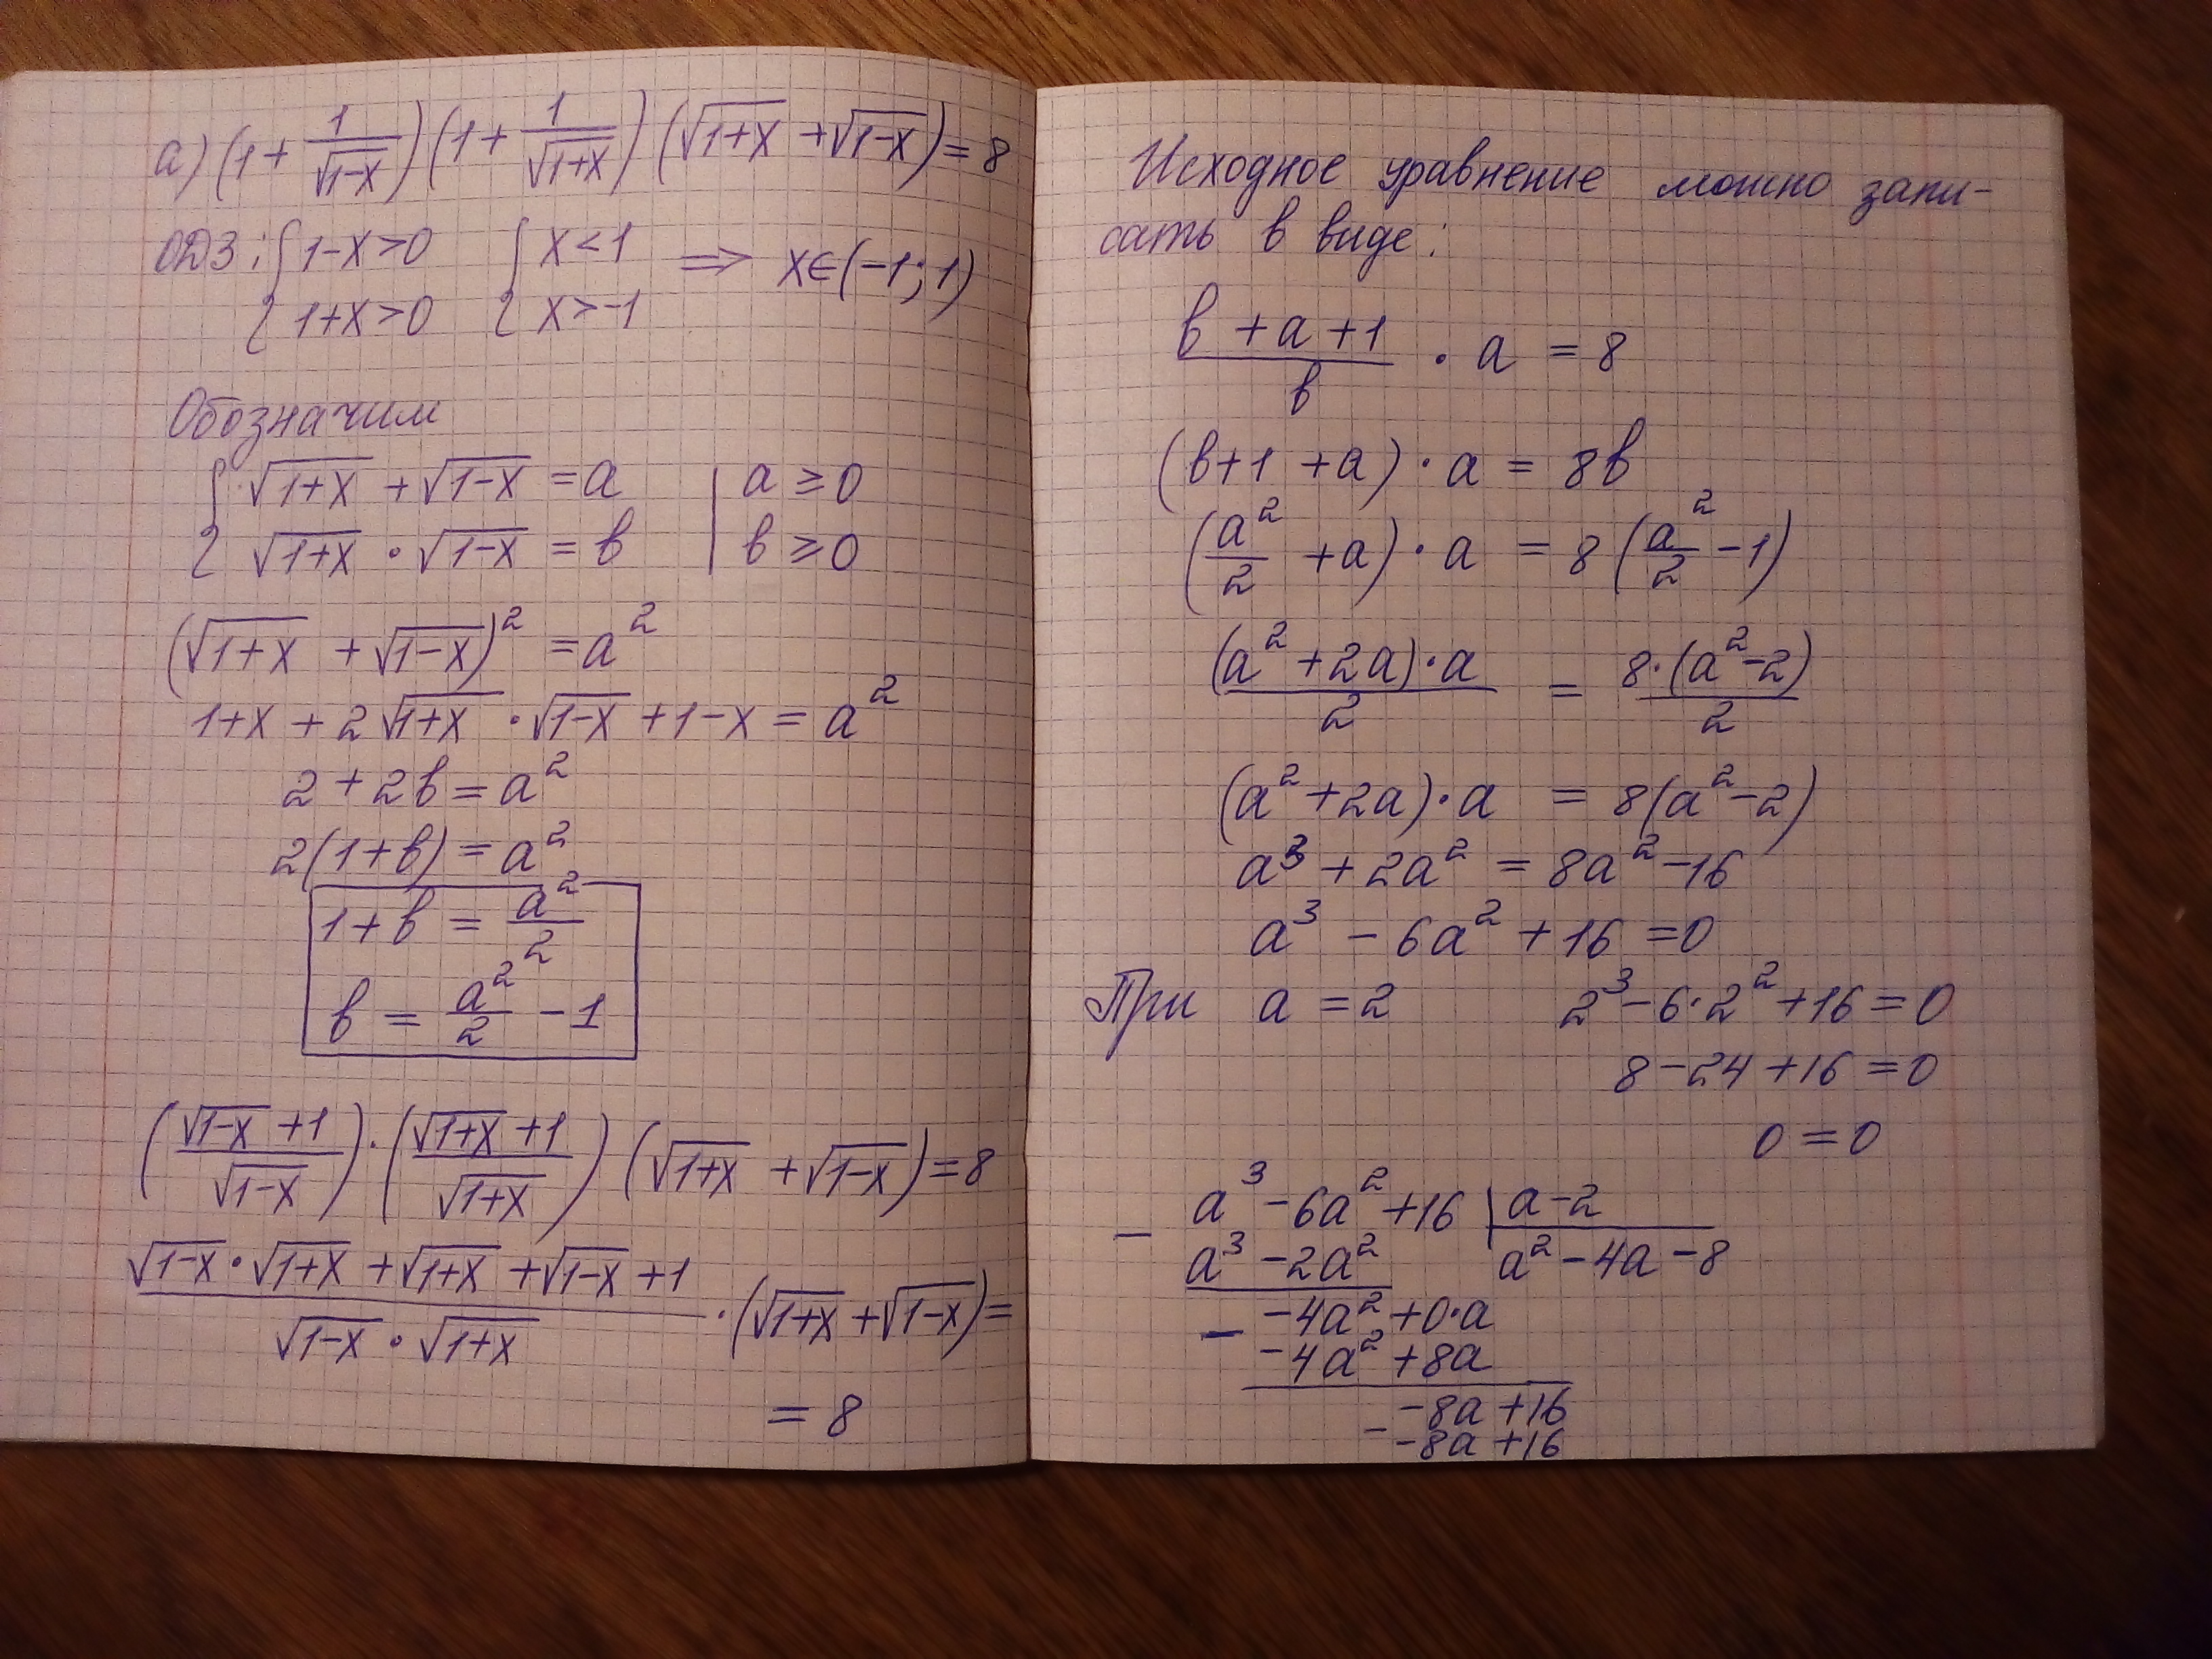 а) (1 + 1/√(1−x)) (1 + 1/√(1+x)) (√(1+x) + √(1−x)) = 8
ОДЗ: { 1−x>0 { x<1 ⇒ x∈(−1; 1)
1+x>0 x>−1
Обозначим
{ √(1+x) + √(1−x) = a | a ≥ 0
√(1+x) · √(1−x) = b | b ≥ 0
(√(1+x) + √(1−x))² = a²
1+x + 2√(1+x) · √(1−x) + 1−x = a²
2 + 2b = a²
2(1+b) = a²
1 + b = a²/2
b = a²/2 − 1
((√(1−x) + 1)/√(1−x)) · ((√(1+x) + 1)/√(1+x)) (√(1+x) + √(1−x)) = 8
(√(1−x) · √(1+x) + √(1+x) + √(1−x) + 1)/(√(1−x) · √(1+x)) · (√(1+x) + √(1−x)) =
= 8
Исходное уравнение можно запи-
сать в виде:
(b + a + 1)/b · a = 8
(b+1 + a) · a = 8b
(a²/2 + a) · a = 8 (a²/2 − 1)
(a² + 2a) · a/2 = 8·(a²−2)/2
(a² + 2a) · a = 8(a²−2)
a³ + 2a² = 8a² −16
a³ − 6a² + 16 = 0
При a = 2 2³ − 6·2² + 16 = 0
8 − 24 + 16 = 0
0 = 0
− a³ − 6a² + 16 | a − 2
a³ − 2a² a² − 4a − 8
− −4a² + 0·a
−4a² + 8a
− −8a + 16
−8a + 16